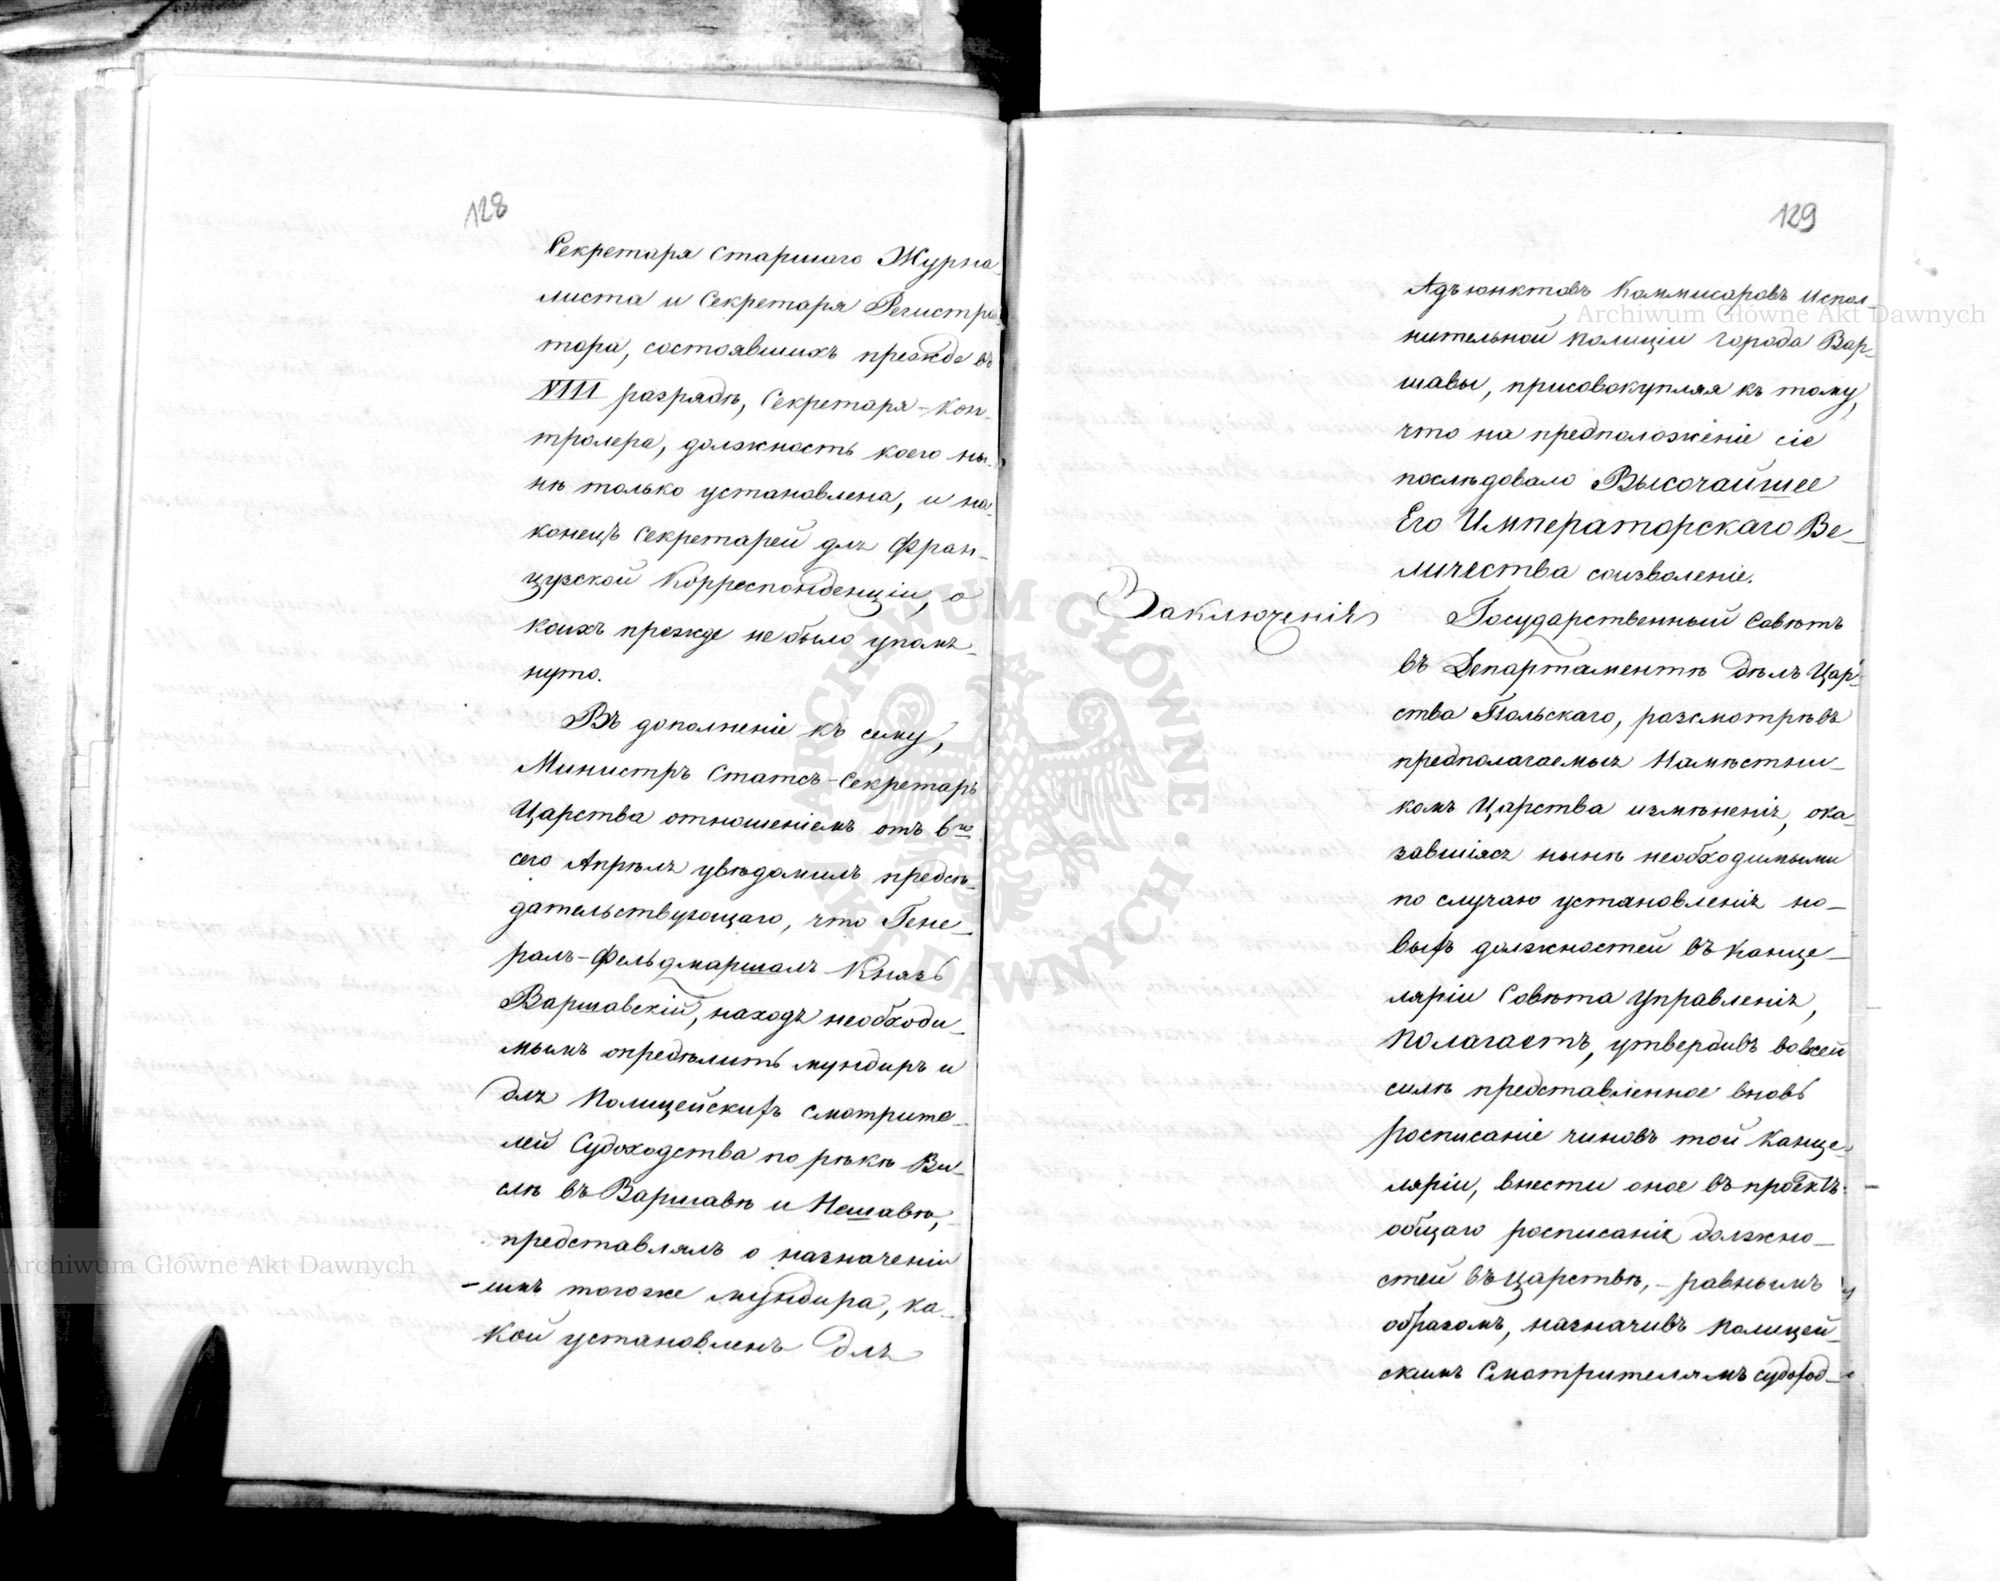 128
Секретаря Старшаго Журна-
листа и Секретаря Регистра-
тора, состоявшихъ прежде въ
VIII разрядѣ, Секретаря-Кон-
тролера, должность коего ны-
нѣ только установлена, и на-
конецъ Секретарей для Фран-
цузской Корреспонденціи, о
коихъ прежде не было упомя-
нуто.
Въ дополненіе къ сему,
Министръ Статсъ-Секретарь
Царства отношеніемъ отъ 6го
сего Апрѣля увѣдомилъ предсѣ-
дательствующаго, что Гене-
ралъ-Фельдмаршалъ Князь
Варшавскій, находя необходи-
мымъ опредѣлить мундиръ и
для Полицейскихъ Смотрите-
лей Судоходства по рѣкѣ Ви-
слѣ въ Варшавѣ и Нешавѣ,
представлялъ о назначеніи
имъ тогоже мундира, ка-
кой установленъ для
129
Адъюнктовъ Коммисаровъ Испол-
нительной Полиціи города Вар-
шавы, присовокупляя къ тому,
что на предположеніе сіе
послѣдовало Высочайшее
Его Императорскаго Ве-
личества соизволеніе.
Заключенія
Государственный Совѣтъ
въ Департаментѣ Дѣлъ Цар-
ства Польскаго, разсмотрѣвъ
предполагаемыя Намѣстни-
комъ Царства измѣненія, ока-
завшіяся нынѣ необходимыми
по случаю установленія но-
выхъ должностей въ Канце-
ляріи Совѣта Управленія,
Полагаетъ, утвердивъ во всей
силѣ представленное вновь
росписаніе чиновъ той Канце-
ляріи, внести оное въ проектъ
общаго росписанія должно-
стей въ Царствѣ, - равнымъ
образомъ, назначивъ Полицей-
скимъ Смотрителямъ судоход-
Archiwum Główne Akt Dawnych
Archiwum Główne Akt Dawnych
ARCHIWUM GŁÓWNE AKT DAWNYCH